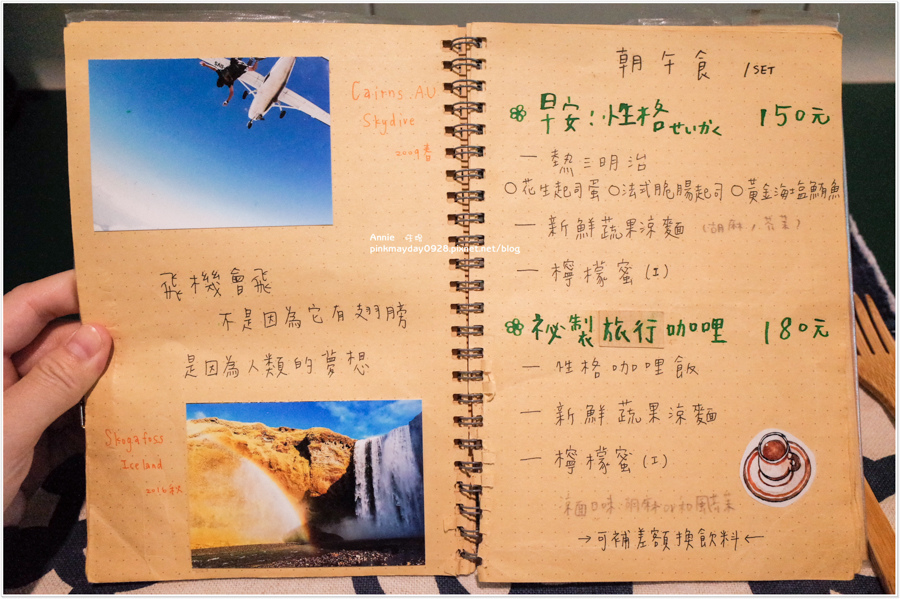 Cairns.AU
Skydive
2009春
Annie
pinkmayday0928.pixnet.net/blog
飛機會飛
不是因為它有翅膀
是因為人類的夢想
Skogafoss
Iceland
2016秋
朝午食 /SET
早安!性格 せいかく 150元
一 熱三明治
○花生起司蛋 ○法式脆腸起司 ○黃金海塩鮪魚
一 新鮮蔬果涼麵 (胡麻/芥茉)
一 檸檬蜜(I)
祕製旅行咖哩 180元
一 性格咖哩飯
一 新鮮蔬果涼麵
一 檸檬蜜(I)
涼面口味:胡麻or和風芥茉
→可補差額換飲料←